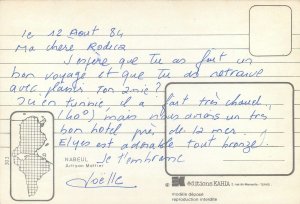 le 12 Aout 84
Ma chère Rodica
J'espère que Tu as fait un
bon voyage et que Tu as retrouvé
avec plaisir Ton amie?
Ici en Tunisie, il a fait très chaud
(40°) mais nous avons un très
bon hôtel près de la mer,
Elyes est adorable tout bronzé.
Je t'embrasse
Joëlle
303
NABEUL
Artisan Mettier
éditions KAHIA
modèle déposé
reproduction interdite